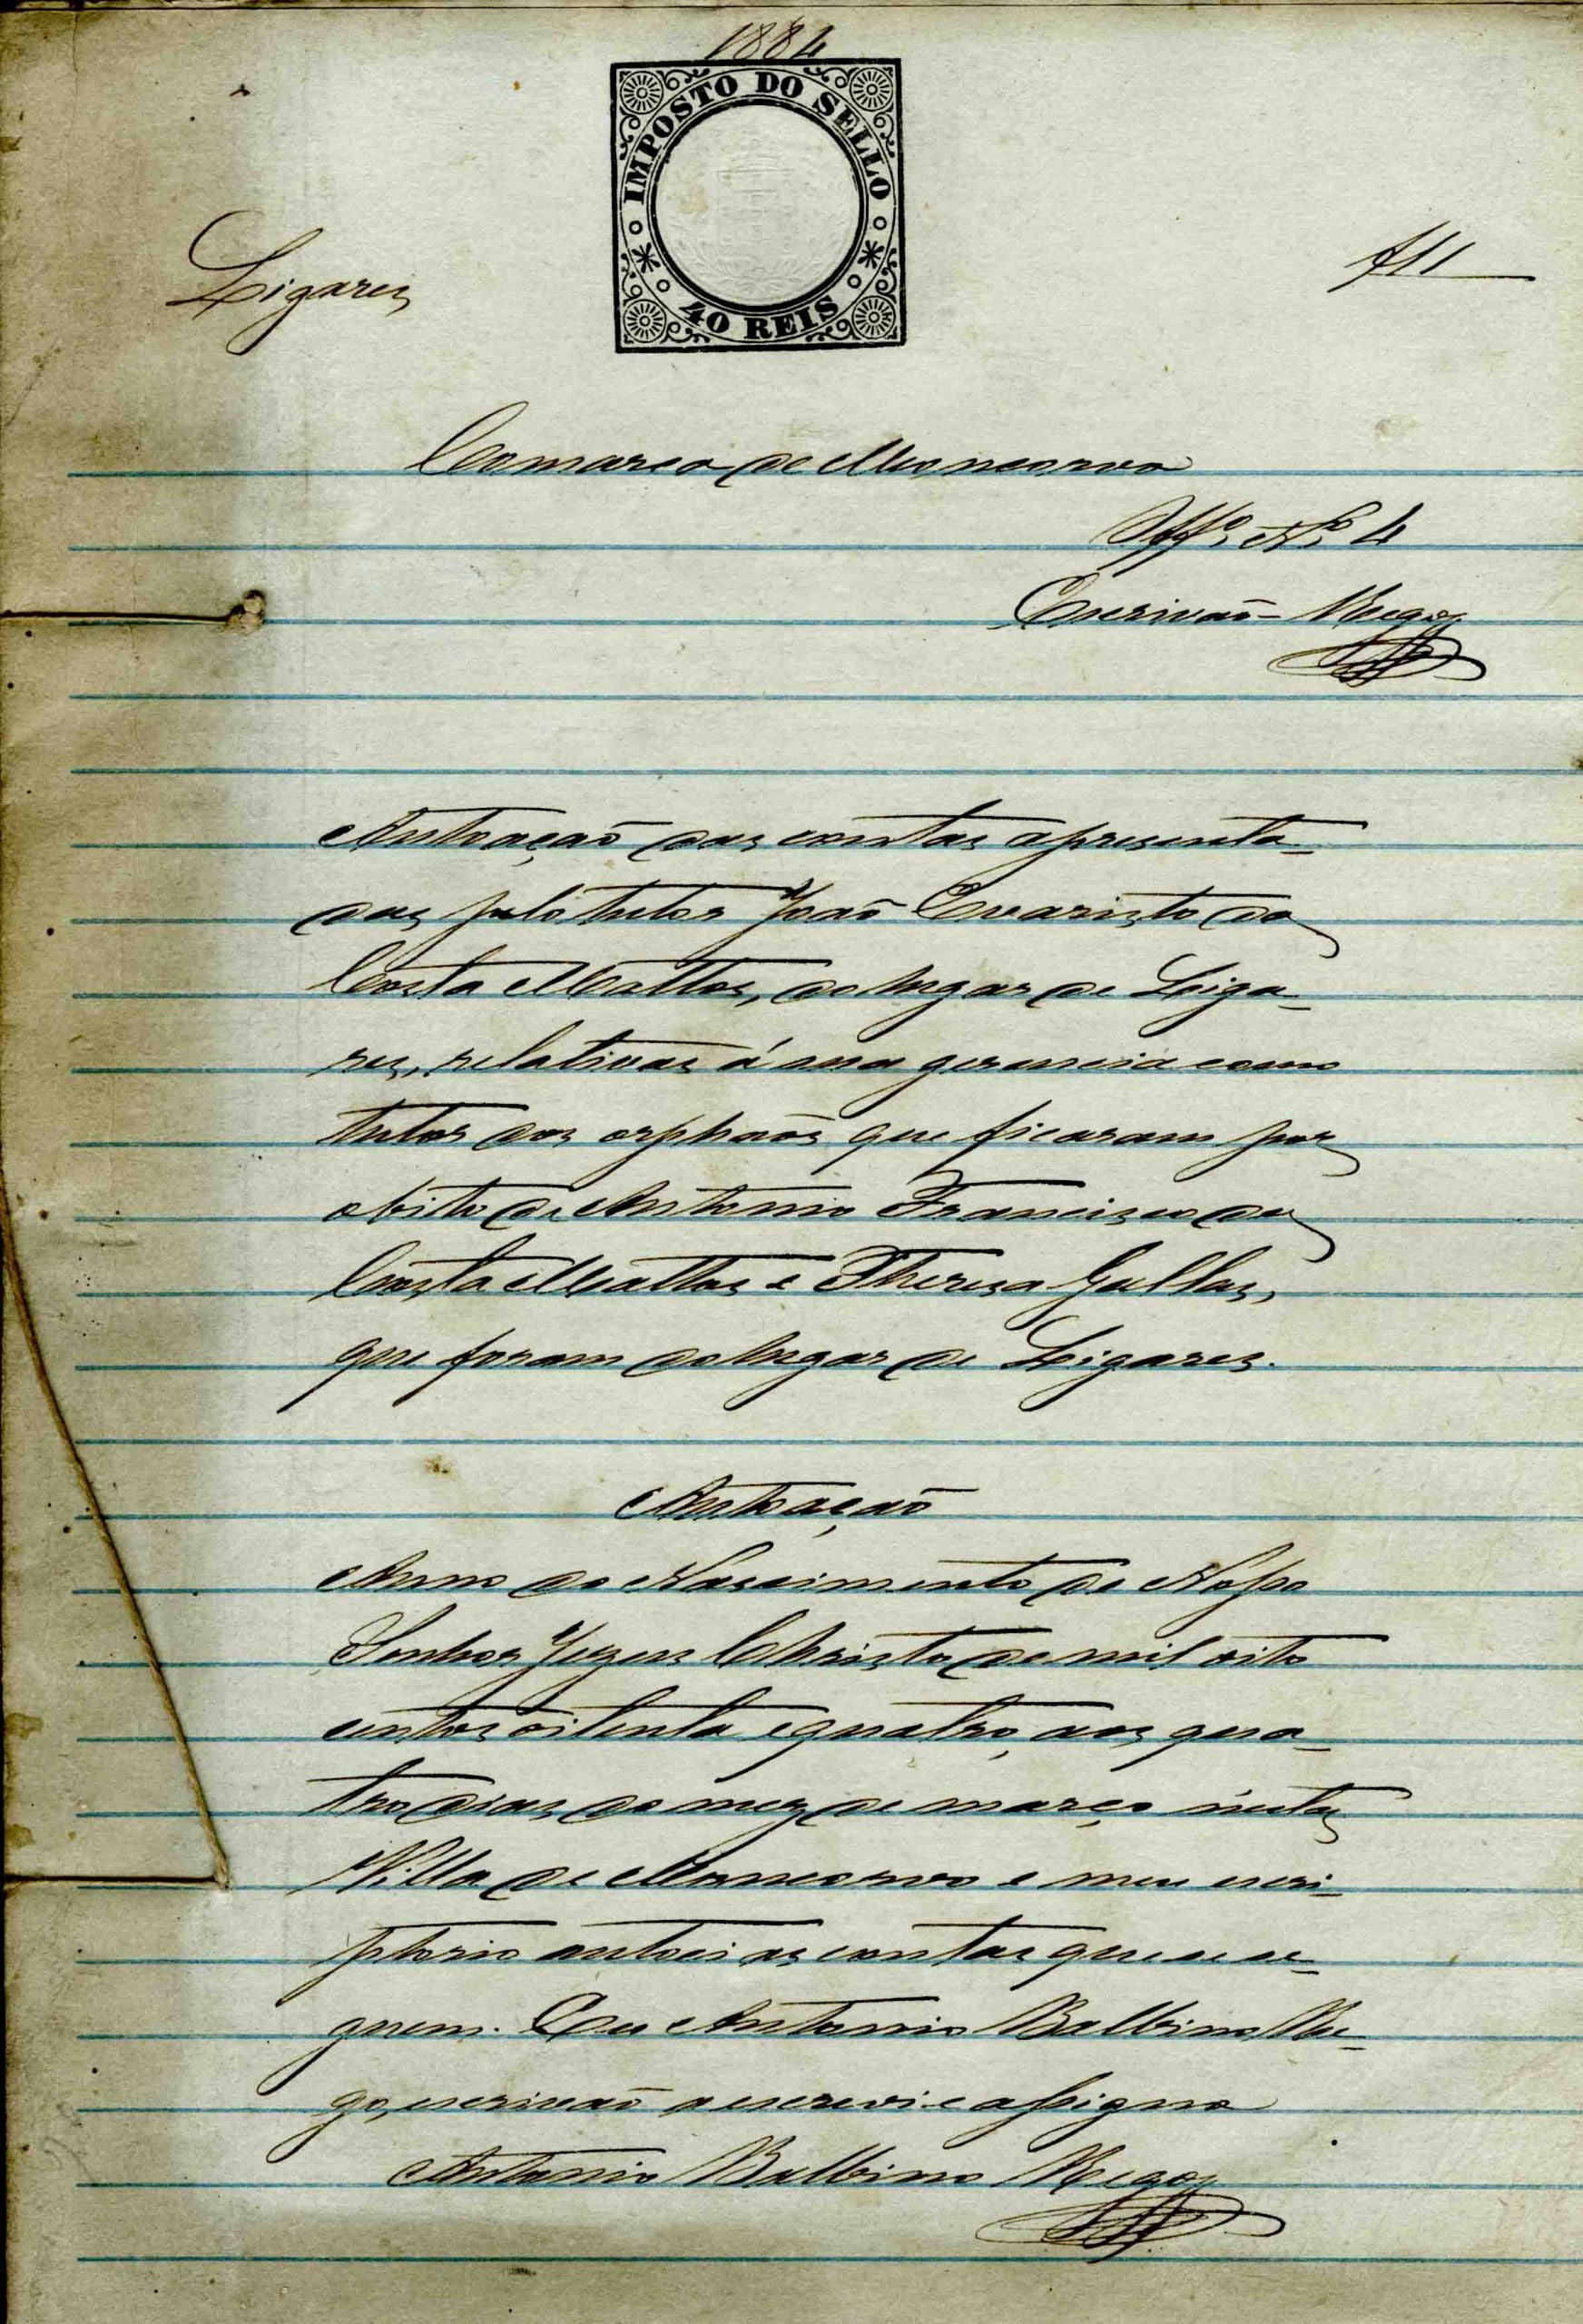 1884
IMPOSTO DO SELLO
40 REIS
Ligares
Comarca de Moncorvo
Offº Nº 4
Escrivaõ - Rego
Autoaçaõ das contas apresenta-
das pelo tutor Joaõ Evaristo da
Costa Mattos, do lugar de Liga-
res, relativas á sua gerencia como
tutor dos orphaõs que ficaram por
obito de Antonio Francisco da
Costa Mattos e Thereza Gallas,
que foram do lugar de Ligares.
Autoaçaõ
Anno do Nascimento de Nosso
Senhor Jezus Christo de mil oito
centos oitenta e quatro, aos qua-
tro dias do mez de março nesta
Villa de Moncorvo e meu escri-
ptorio autoei as contas que se se-
guem. Eu Antonio Balbino Re-
go, escrivaõ o escrevi e assigno
Antonio Balbino Rego